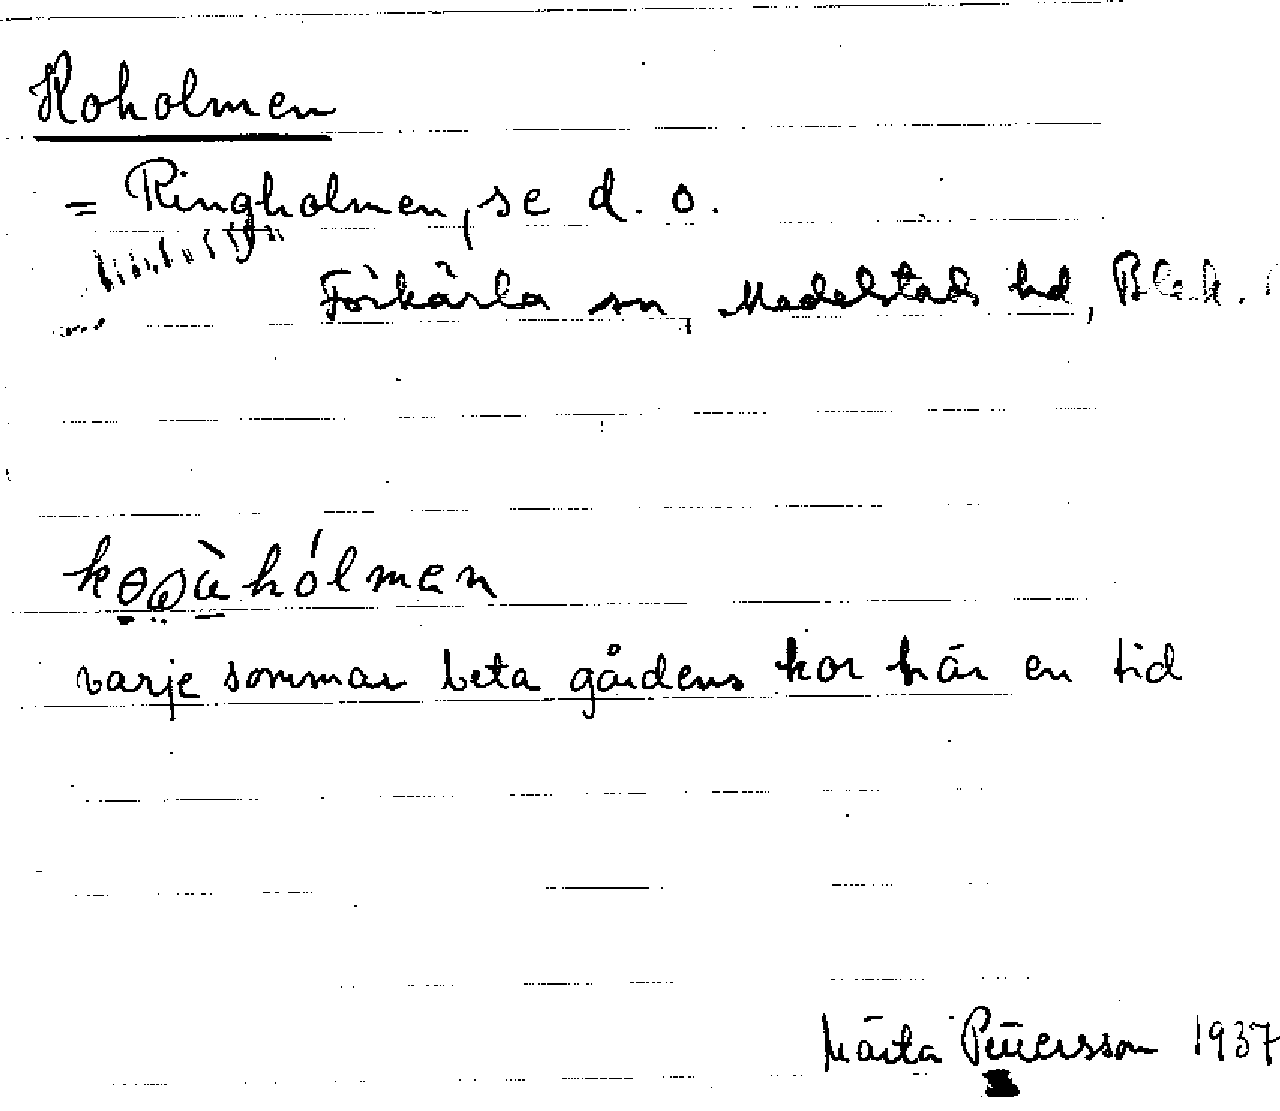 Koholmen
= Ringholmen, se d. o.
Förkärla sn, Medelstads hd, Blek.
varje sommar beta gårdens kor här en tid
Märta Petersson 1937